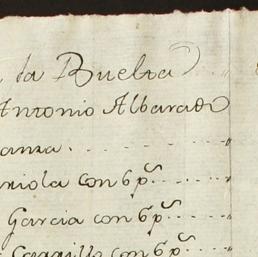 la Buelta
Antonio Albarado
anza
niola con 6 p.s
Garcia con 6 p.s
Carrillo con 6 p.s